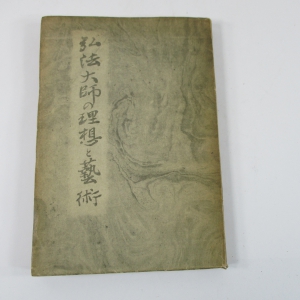 弘法大師の理想と藝術